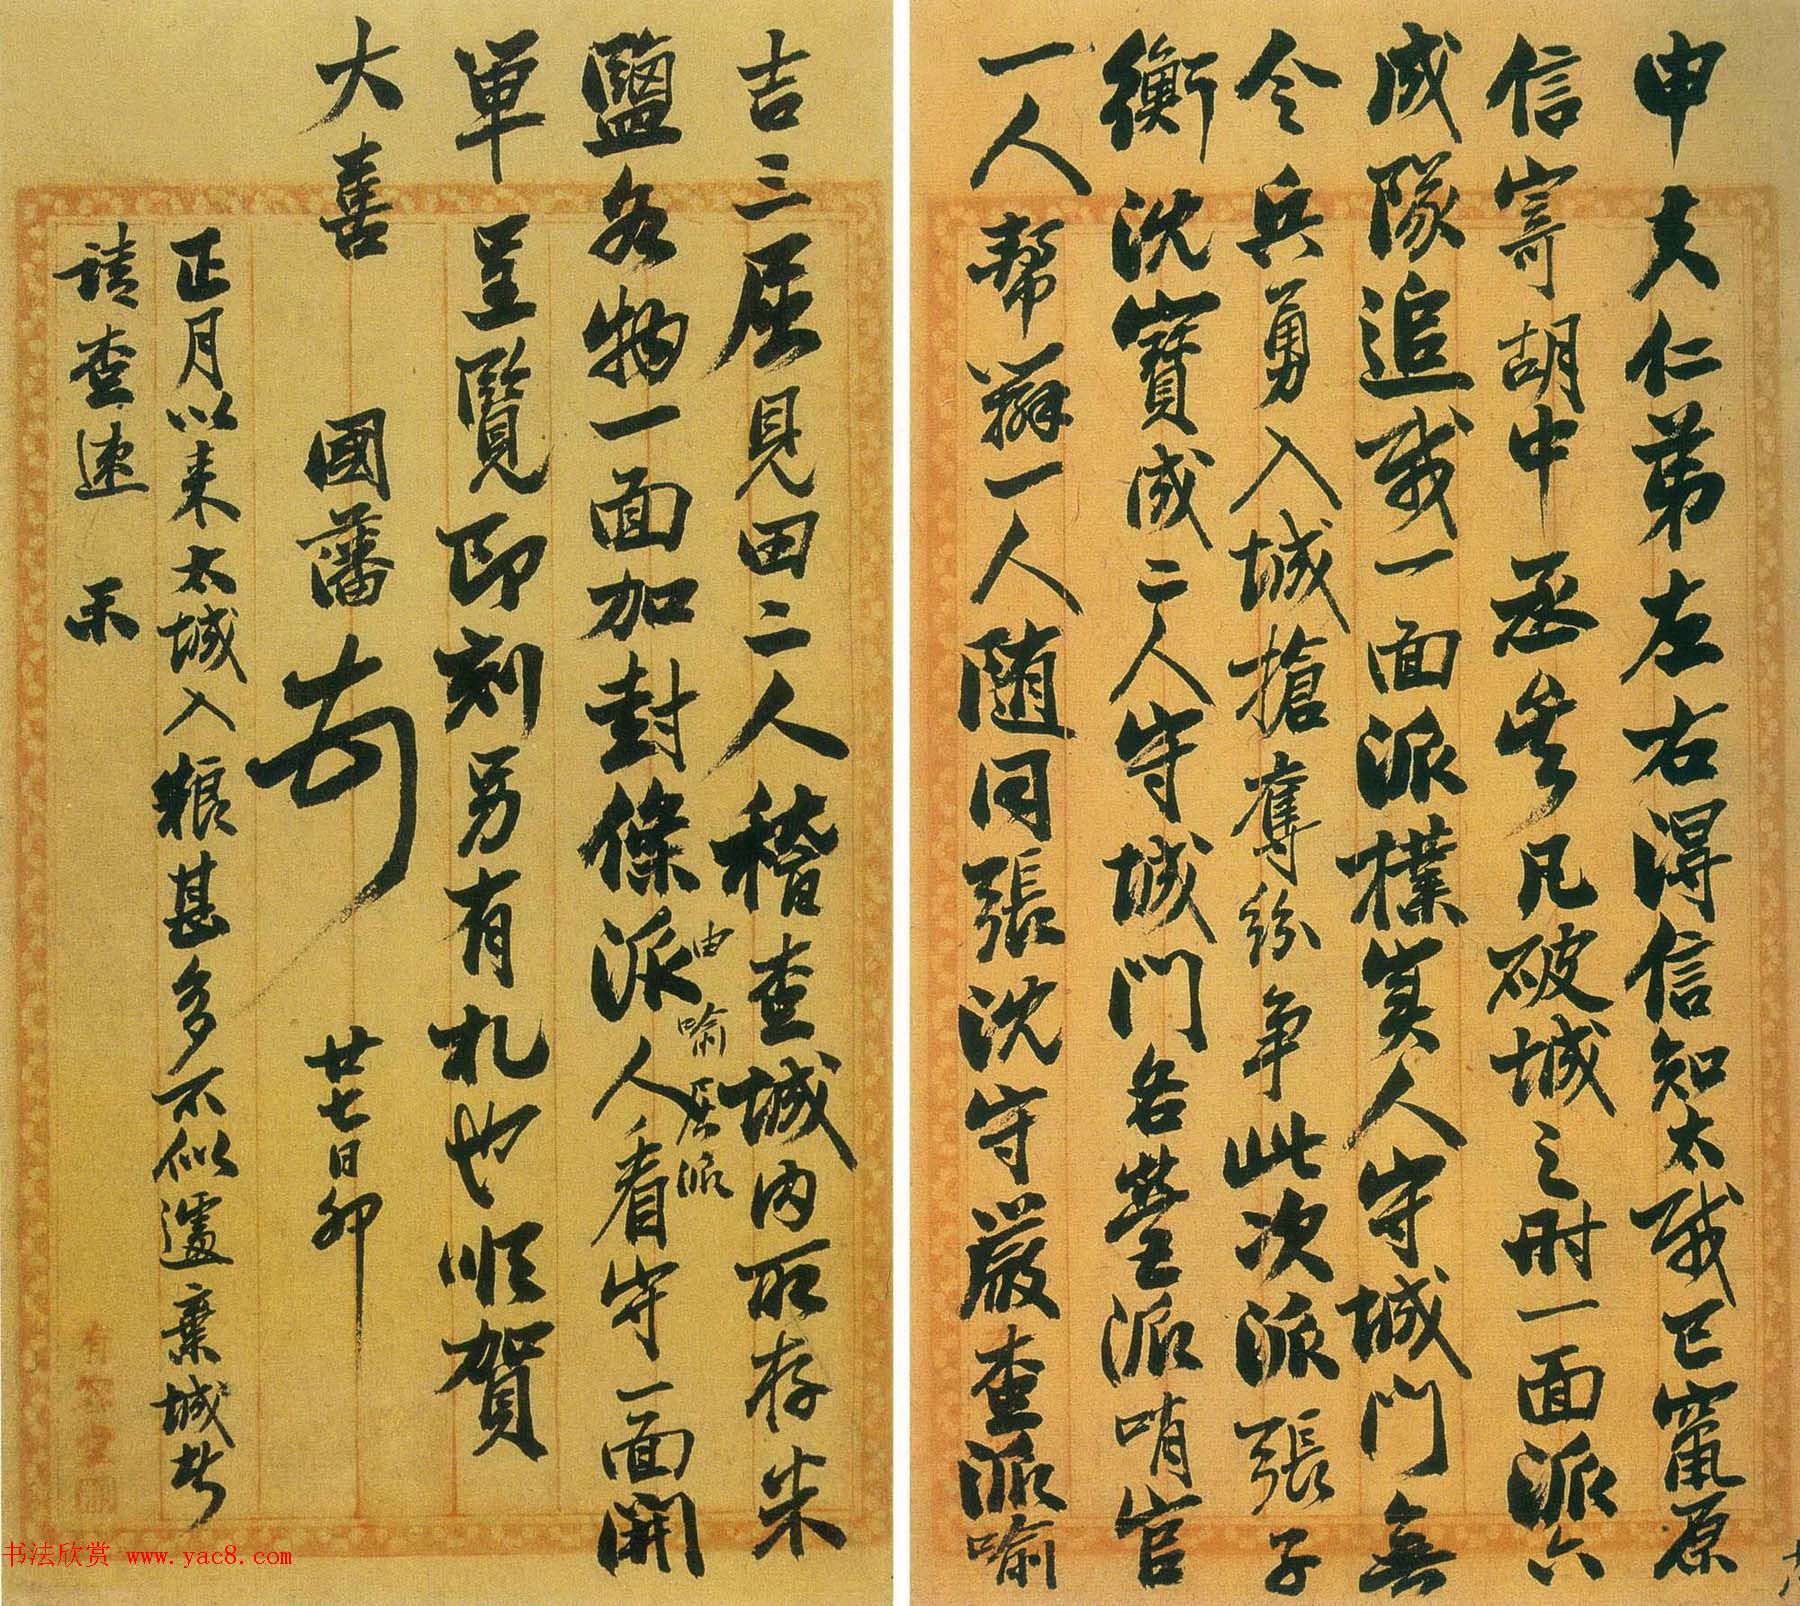 申夫仁弟左右得信知太賊已竄原
信寄胡中丞矣凡破城之時一面派六
成隊追賊一面派樸實人守城門無
令兵勇入城搶奪紛爭此次派張子
衡沈寶成二人守城門各營派哨官
一人幫辦一人隨同張沈守嚴查派喻
吉三屈見田二人稽查城內所存米
鹽各物一面加封條派人看守一面開
由喻屈派
單呈覽即刻另有札也順賀
大喜 國藩 頓首 廿七日卯
正月以來太城入糧甚多不似遽棄城者
請查速示
有容堂
书法欣赏 www.yac8.com